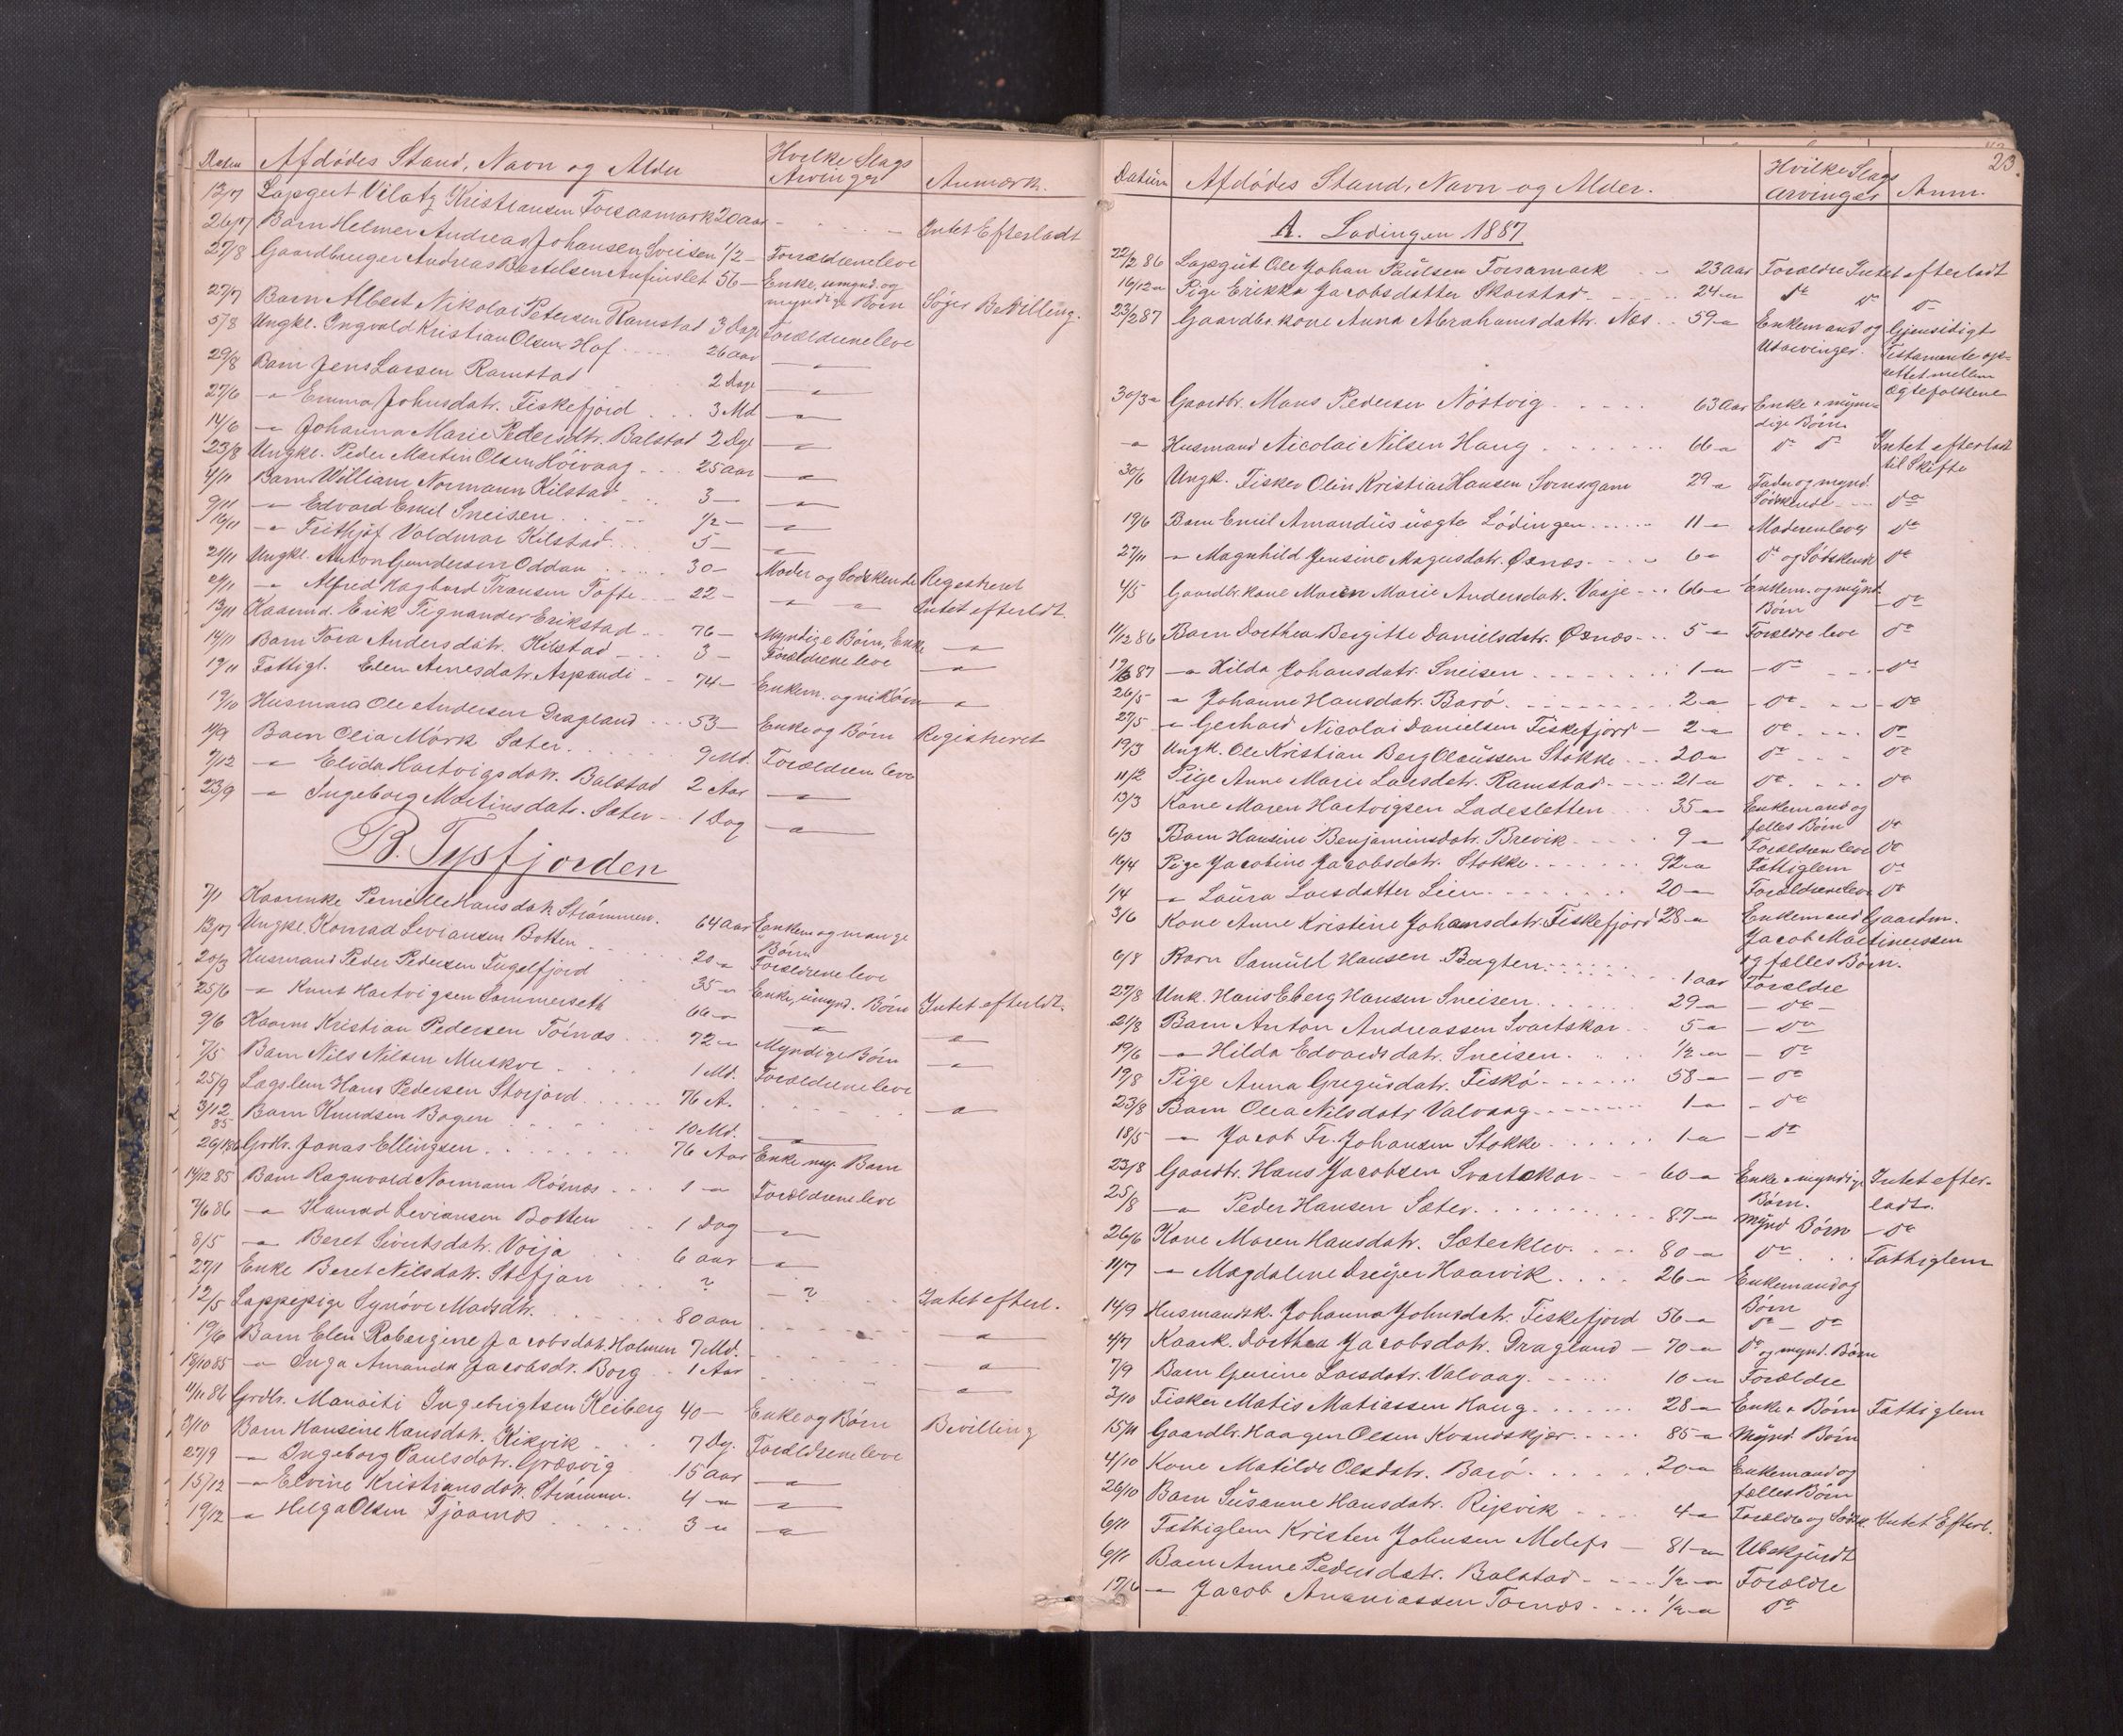 Datum Afdödes Stand, Navn og Alder Hvilke Slags Arvinger Anmærk.
13/7 Lapgut Vilatz Kristiansen Forsaamark 20 aar - - - Intet Efterladt
26/7 Barn Helmer Andreas Johansen Sneisen 1/2 - Forældrene leve
27/8 Gaardbruger Andreas Bertelsen Anfinslet 56 - Enke, umynd. og myndige Børn Søger Bevilling.
27/7 Barn Albert Nikolai Petersen Ramstad 3 Dage Forældrene leve
5/8 Ungkl. Ingvald Kristian Olsen Hof 26 aar - " -
29/8 Barn Jens Larsen Ramstad 2 Dage - " -
27/6 - " - Emma Johnsdatr. Fiskefjord 3 Md - " -
14/6 - " - Johanna Marie Pedersdtr. Balstad 2 Dge - " -
23/8 Ungkl. Peder Martin Olsen Höivaag 25 aar - " -
4/11 Barn William Normann Kilstad 3 - - " -
9/11 - " - Edvard Emil Sneisen 1/2 - - " -
16/11 - " - Frithjof Valdmar Kilstad 5 - - " -
21/11 Ungkl. Anton Gundersen Oddan 30 - Moder og Sødskende Registreret
21/11 - " - Alfred Hagbard Transen Tofte 22 - - " - - " - Intet efterldt.
13/11 Kaarmd. Erik Tignander Erikstad 76 - Myndige Børn, Enke - " -
14/11 Barn Tora Andersdatr. Kilstad 3 - Forældrene leve - " -
19/11 Fattigl. Elen Arnesdatr. Aspandi 74 - Enkem. og ni Børn - " -
19/10 Husmand Ole Andersen Dragland 53 - Enke og Børn Registreret
14/9 Barn Olia Mörk Sæter 9 Md. Forældrene leve
7/12 - " - Elida Hartvigsdatr. Balstad 2 Aar - " -
23/9 - " - Ingeborg Martinsdatr. Sæter 1 Dag - " -
B. Tysfjorden
7/1 Kaarenke Pernille Hansdatr. Strömmen. 64 aar Enkem og mange Børn
13/7 Ungkl. Konrad Leviansen Botten 20 " Forældrene leve
20/3 Husmand Peder Pedersen Fugelfjord 35 - " Enke, umynd. Børn Intet efterldt.
25/6 - " - Knut Hartvigsen Sommerseth 66 - " - " - - " -
9/6 Kaarm Kristian Pedersen Toinæs 72 - " Myndige Børn - " -
7/5 Barn Nils Nilsen Muskve 1 Md. Forældrene leve
25/9 Lagslem Hans Pedersen Storjord 76 A. - " -
3/12 85 Barn Knudsen Bogen 10 Md. - " -
26/1 86 Grdbr. Jonas Ellingsen 76 Aar Enke my. Barn
14/12 85 Barn Ragnvald Normann Rösnæs 1 - " Forældrene leve
7/6 86 - " - Konrad Leviansen Botten 1 Dag - " -
8/5 - " - Beret Sivertsdatr. Voija 6 aar - " -
27/1 Enke Beret Nilsdatr. Stefjan ? - ? Intet efterl.
12/5 Lappepige Synöve Madsdtr. 80 aar - " -
19/6 Barn Elen Robergine Jacobsdatr. Holmen 7 Md. - " -
18/10 85 - " - Inga Amanda Jacobsdr. Borg 1 Aar - " -
11/11 86 Grdbr. Manaiti Ingebrigtsen Keiberg 40 - Enke og Børn Bevilling
3/10 Barn Hansine Hansdatr. Kikvik 7 Dg. Forældrene leve
27/9 - " - Ingeborg Paulsdatr. Græsvig 15 aar - " -
15/12 - " - Elvine Kristiansdatr. Strömmen. 4 - " - " -
19/12 - " Helga Olsen Tjaarnæs 3 " - " -
23.
Datum Afdödes Stand, Navn og Alder. Hvilke Slags Arvinger Anm.
A. Lødingen 1887
22/2 86 Lapgut Ole Johan Paulsen Forsamark 23 aar Forældre Intet efterladt
16/12 " Pige Erikka Jacobsdatter Skarstad 24 " do do do
23/2 87 Gaardbr. kone Anna Abrahamsdattr. Næs 59 " Enkemand og Utarvinger. Gjensidigt Testamente op-
rettet mellem
Ægtefolkene
30/3 " Gaardbr. Mons Pedersen Nöstvig 63 aar Enke & myn-
dige Børn
- " Husmand Nicolai Nilsen Haug 66 " do do Intet efterladt
til Skifte
30/6 Ungk. Fisker Olin Kristian Hansen Sornsgam 29 " Fader og mynd. Södskende do
19/6 Barn Emil Amandus uægte Lödingen 11 " Moderen lever do
27/11 - " Magnhild Jensine Magnusdatr. Øxnæs 6 " do og Södskende do
4/5 Gaardbr. kone Maren Marie Andersdatr. Vaaje 66 " Enkem. og mynd. Børn do
11/12 86 Barn Dorthea Bergitte Daniellsdatr. Øxnæs 5 " Forældre leve do
19/6 87 - " Hilda Johansdatr. Sneisen 1 " do do
26/5 " Johanne Hansdatr. Barö 2 " do do
27/5 - " Gerhard Nicolai Danielsen Fiskefjord 2 " do do
19/3 Ungk. Ole Kristian Berg Olaussen Stokke 20 " do do
11/2 Pige Anne Marie Larsdatr. Ramstad 21 " do do
13/3 Kone Maren Hartvigsen Ladesletten 35 " Enkemand og fælles Børn do
6/3 Barn Hansine Benjaminsdatr. Brevik 9 " Forældrene leve do
16/4 Pige Jacobine Jacobsdatr. Stokke 92 " Fattiglem do
1/4 " Laura Larsdatter Lien 20 " Forældrene leve do
3/6 Kone Anne Kristine Johansdatr. Fiskefjord 28 " Enkemand Gaardm.
Jacob Martinussen
og fælles Børn.
6/8 Barn Samuel Hansen Bugten 1 aar Forældre
27/8 Unk. Hans Eberg Hansen Sneisen 29 " do
21/8 Barn Anton Andreassen Svartskar 5 " do
19/6 - " Hilda Edvardsdatr. Sneisen 1/2 " do
19/8 Pige Anna Gregusdatr. Fiskö 58 " do
23/8 Barn Olea Nilsdatr Valvaag 1 " do
18/5 - " Jacob Fr. Johansen Stokke 1 " do
23/8 Gaardbr. Hans Jacobsen Svartskar 60 " Enke & myndige Børn. Intet efter-
ladt.
25/8 - " Peder Hansen Sæter 87 " Mynd Børn do
26/6 Kone Maren Hansdatr. Sæterklev 80 " do Fattiglem
11/7 - " Magdalene Dreyer Haarvik 26 " Enkemand og Børn
14/9 Husmandsk. Johanna Johnsdatr. Fiskefjord 56 " do do
4/7 Kaark. Dorthea Jacobsdatr. Dragland 70 " do og mynd. Børn
7/9 Barn Gurine Larsdatr. Valvaag 10 " Forældre
3/10 Fisker Matis Matiassen Haug 28 " Enke & Børn Fattiglem
15/11 Gaardbr. Haagen Olsen Kvandskjær 85 " Mynd Børn
4/10 Kone Matilde Olsdatr. Barö 20 " Enkemand og fælles Børn
26/10 Barn Susanne Hansdatr. Ripvik 4 " Forældre og Södsk. Intet Efterl.
6/11 Fattiglem Kristen Johnsen Melefs 81 " Ubekjendt
6/11 Barn Anne Pedersdatr. Balstad 1/2 " Forældre
17/6 - " Jacob Ananiassen Tornæs 1/2 " do